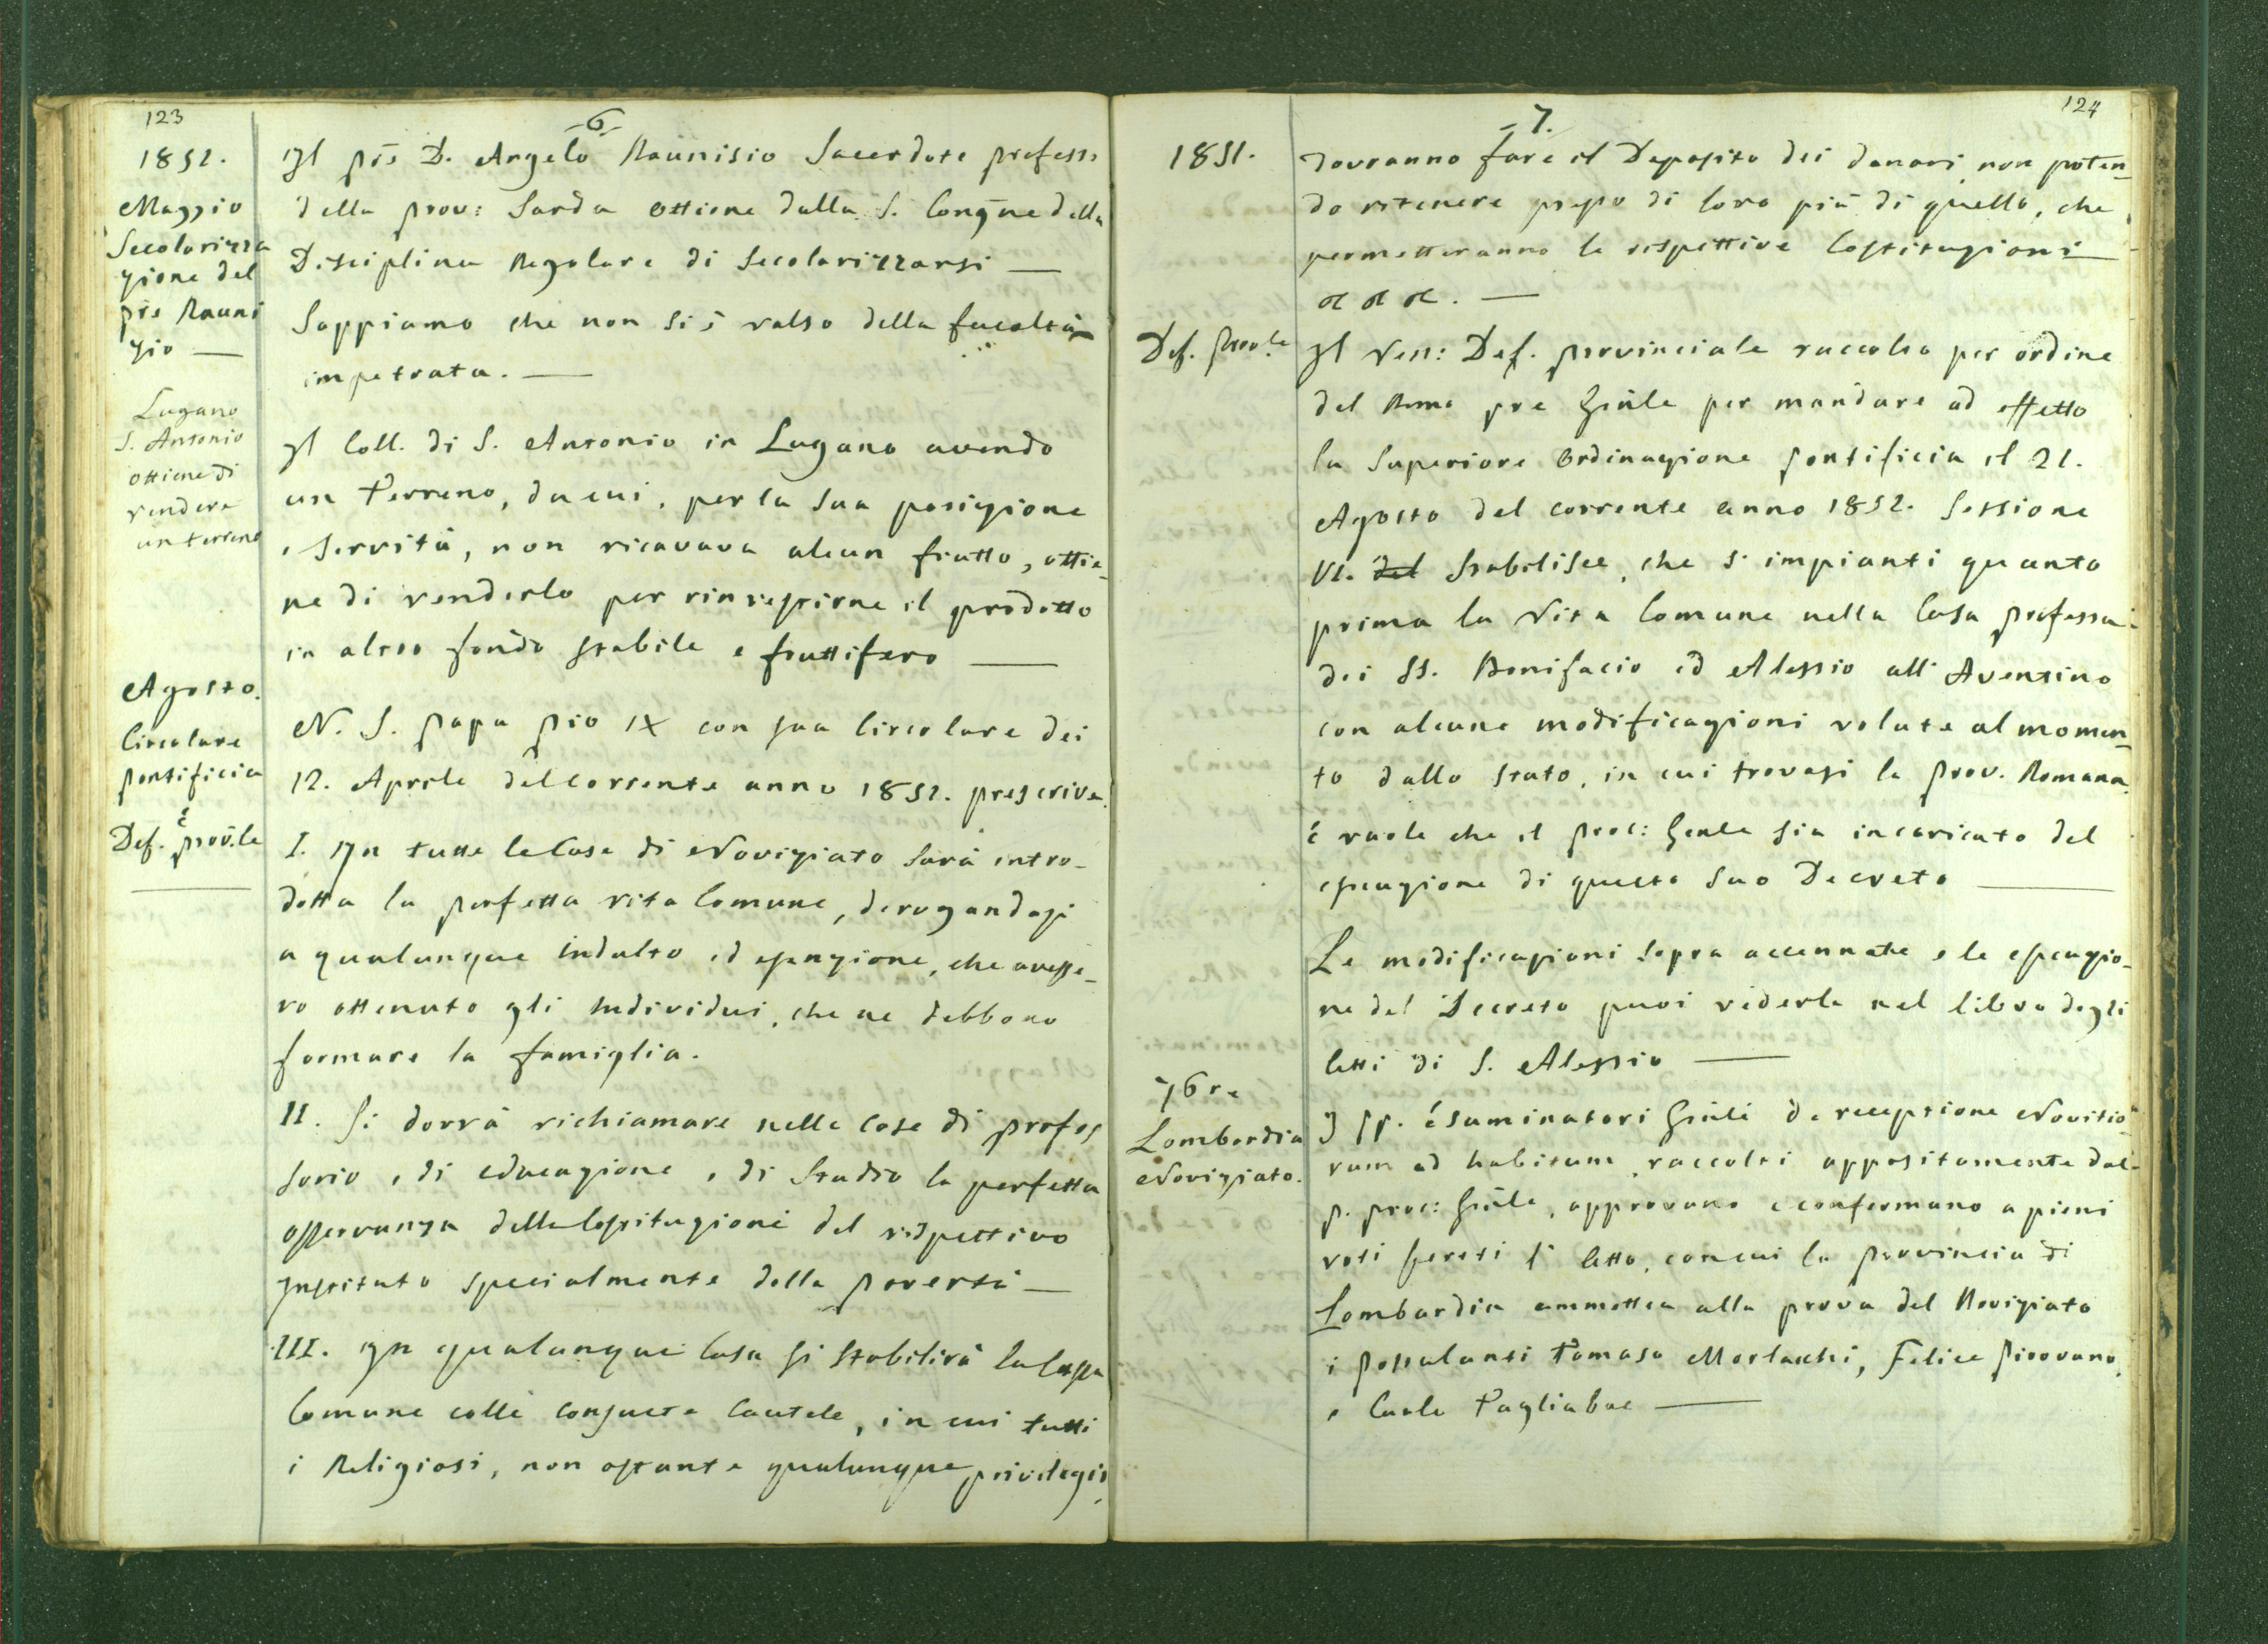 123
-6-
1852.
Maggio
Secolarizza
zione del
pre Rauni
zio —
Il pre D. Angelo Raunisio Sacerdote professo
della prov: Sarda ottiene dalla S. Congne della
Disciplina Regolare di Secolarizzarsi —
Sappiamo che non si è valso della facoltà
impetrata. —
Lugano
S. Antonio
ottiene di
vendere
un terreno
Il Coll. di S. Antonio in Lugano avendo
un Terreno, da cui, per la sua posizione
e servitù, non ricavava alcun frutto, ottie-
ne di venderlo per rinvestirne il prodotto
in altro fondo stabile e fruttifero —
Agosto.
Circolare
pontificia
é
Def. prov.le
N. S. papa pio IX con sua Circolare dei
12. Aprile del corrente anno 1852. prescrive:
I. In tutte le Case di Noviziato sarà intro-
dotta la perfetta vita Comune, derogandosi
a qualunque indulto ed esenzione, che avesse-
ro ottenuto gli Individui, che ne debbono
formare la famiglia.
II. Si dovrà richiamare nelle Case di profes
sorio, di educazione, di Studio la perfetta
osservanza delle Costituzioni del rispettivo
Instituto specialmente della povertà —
III. In qualunque Casa si stabilirà la Cassa
Comune colle consuete Cautele, in cui tutti
i Religiosi, non ostante qualunque privilegio,
124
-7.
1851.
dovranno fare il Deposito dei danari, non poten-
do ritenere presso di loro più di quello, che
permetteranno le rispettive Costituzioni
&c &c &c. —
Def. prov.le
Il Ven: Def. provinciale raccolto per ordine
del Rmo pre Gnle per mandare ad effetto
la Superiore Ordinazione pontificia il 21.
Agosto del corrente anno 1852. Sessione
VI. del Stabilisce, che s'impianti quanto
prima la Vita Comune nella Casa professa
dei SS. Bonifacio ed Alessio all'Aventino
con alcune modificazioni volute al momen-
to dallo Stato, in cui trovasi la prov. Romana
é vuole che il proc: Gnle sia incaricato del
esecuzione di questo suo Decreto —
Le modificazioni sopra accennate e la esecuzio-
ne del Decreto puoi vederle nel libro degli
Atti di S. Alessio —
7bre
Lombardia
Noviziato.
I PP. ésaminatori Gnli de receptione Novitio-
rum ad habitum, raccolti appositamente dal
p. proc: Gnle, approvano e confermano a pieni
voti segreti l'Atto, con cui la provincia di
Lombardia ammettea alla prova del Noviziato
i postulanti Tomaso Morlacchi, Felice Pirovano,
e Carlo Tagliabue —